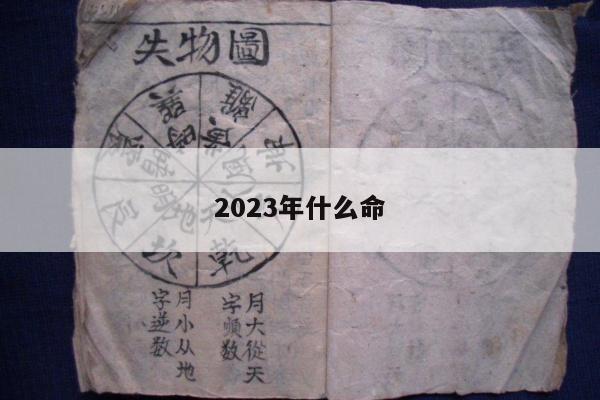 失物圖
離
艮
地
天
乾
2023年什么命
月大從天
字順数
月小从地
字逆数